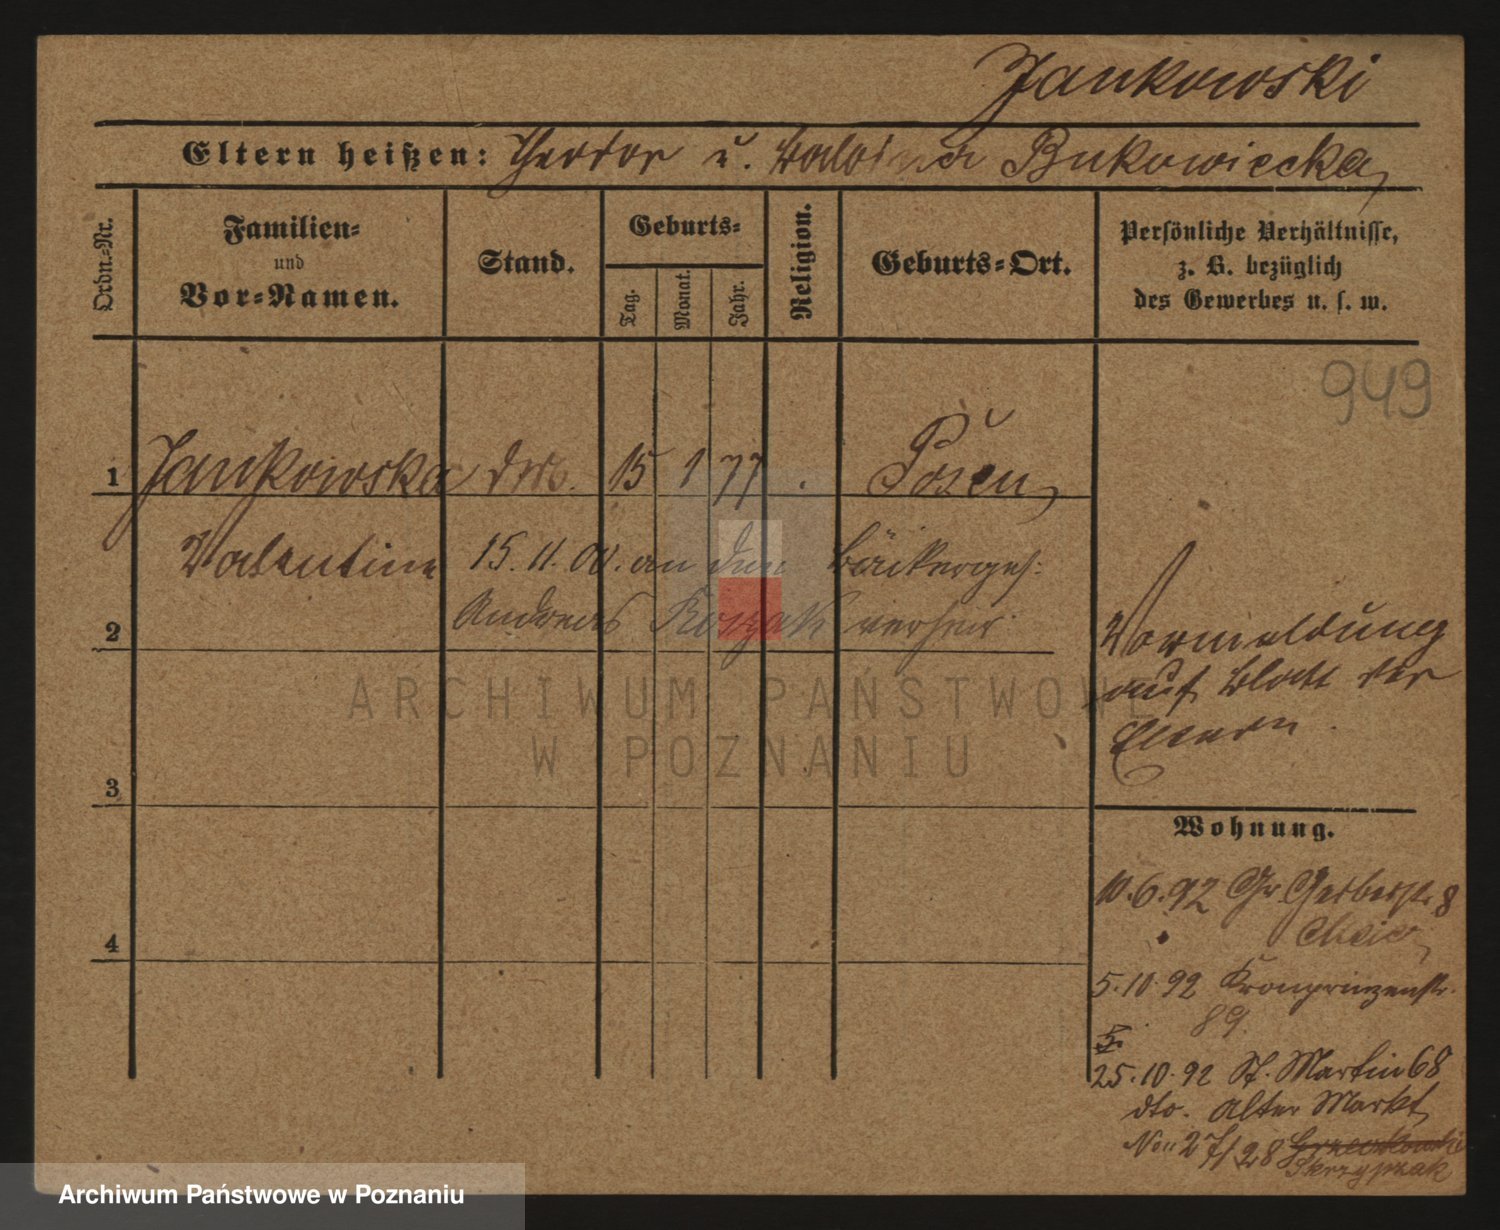 Jankowski
Eltern heißen: Theodor u. Bukowiecka
Ordn.-Nr.
Familien-
und
Vor-Namen.
Stand.
Geburts-
Tag.
Monat.
Jahr.
Religion.
Geburts-Ort.
Persönliche Verhältnisse,
z. B. bezüglich
des Gewerbes u. s. w.
949
1 Jankowska 15 1 77 Posen
Valentine 15. 11. 00. an den Bäckerges:
2 Andreas Koszak verheir.
Vormeldung
auf Blatt der
Eltern.
3
Wohnung.
10.6.92 Gr Gerberstr. 8
4
5.10.92 Kronprinzenstr.
89.
5.
25.10.92 St. Martin 68
dto. Alter Markt
27/28
Skrzypczak
ARCHIWUM PAŃSTWOWE
W POZNANIU
Archiwum Państwowe w Poznaniu